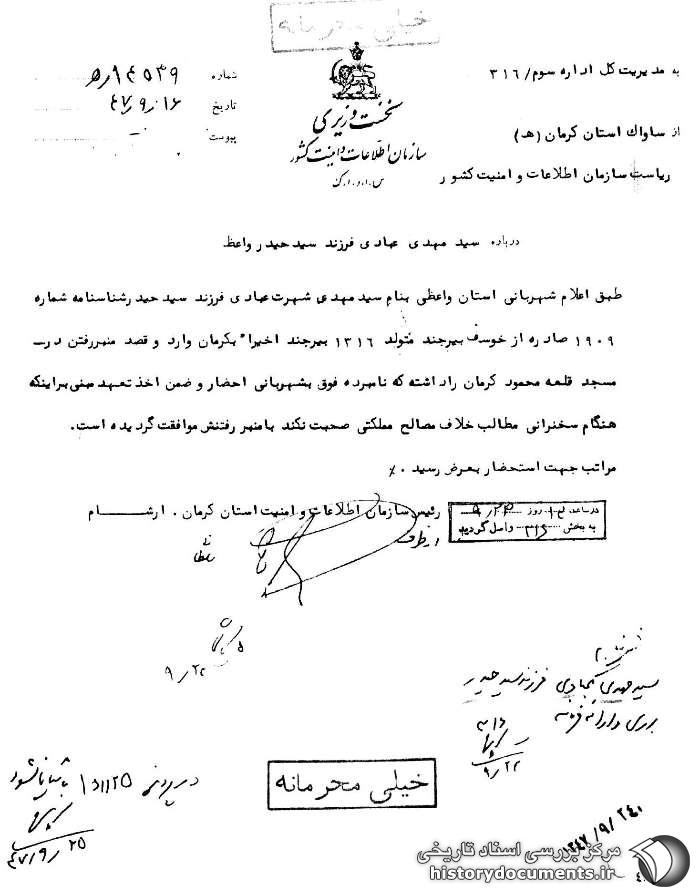 خیلی محرمانه
به مدیریت کل اداره سوم/ ۳۱۶
از ساواك استان کرمان (هـ)
ریاست سازمان اطلاعات و امنیت کشور
نخست وزیری
سازمان اطلاعات و امنیت کشور
س.ا.و.ا.ک
شماره ۱۴۵۳۹/ﻫ
تاریخ ۴۷/۹/۱۶
پیوست
درباره سید مهدی عبادی فرزند سید حیدر واعظ
طبق اعلام شهربانی استان واعظی بنام سید مهدی شهرت عبادی فرزند سید حیدر شناسنامه شماره
۱۹۰۹ صادره از خوسف بیرجند متولد ۱۳۱۶ بیرجند اخیراً بکرمان وارد و قصد منبر رفتن در
مسجد قلعه محمود کرمان را داشته که نامبرده فوق بشهربانی احضار و ضمن اخذ تعهد مبنی بر اینکه
هنگام سخنرانی مطالب خلاف مصالح مملکتی صحبت نکند با منبر رفتنش موافقت گردیده است.
مراتب جهت استحضار بعرض رسید ٪
رئیس سازمان اطلاعات و امنیت استان کرمان . ارشام
از طرف
در ساعت روز
به بخش ۳۱۶ واصل گردید
۹/۲۲
سید مهدی عبادی فرزند سید حیدر
۳۱۶
۹/۲۲
خیلی محرمانه
در پرونده
بایگانی شود
۴۷/۹/۲۵
۱۳۴۷/۹/۲۴
مرکز بررسی اسناد تاریخی
historydocuments.ir